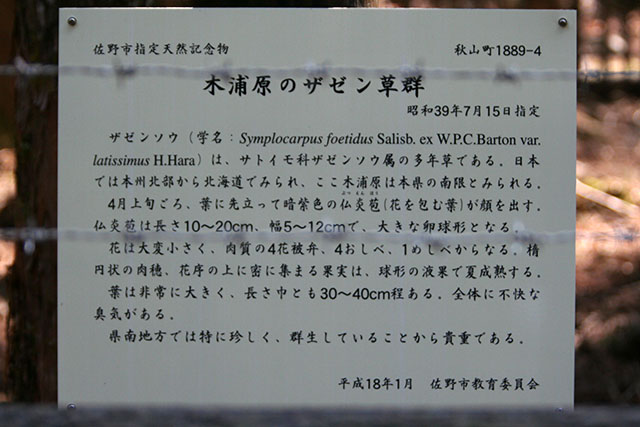 佐野市指定天然記念物　秋山町1889-4
木浦原のザゼン草群
昭和39年7月15日指定
ザゼンソウ（学名：Symplocarpus foetidus Salisb. ex W.P.C.Barton var.
latissimus H.Hara）は、サトイモ科ザゼンソウ属の多年草である。日本
では本州北部から北海道でみられ、ここ木浦原は本県の南限とみられる。
4月上旬ごろ、葉に先立って暗紫色の仏炎苞(花を包む葉)が顔を出す。
ぶつ えん ほう
仏炎苞は長さ10〜20cm、幅5〜12cmで、大きな卵球形となる。
花は大変小さく、肉質の4花被弁、4おしべ、1めしべからなる。楕
円状の肉穂、花序の上に密に集まる果実は、球形の液果で夏成熟する。
葉は非常に大きく、長さ巾とも30〜40cm程ある。全体に不快な
臭気がある。
県南地方では特に珍しく、群生していることから貴重である。
平成18年1月　佐野市教育委員会